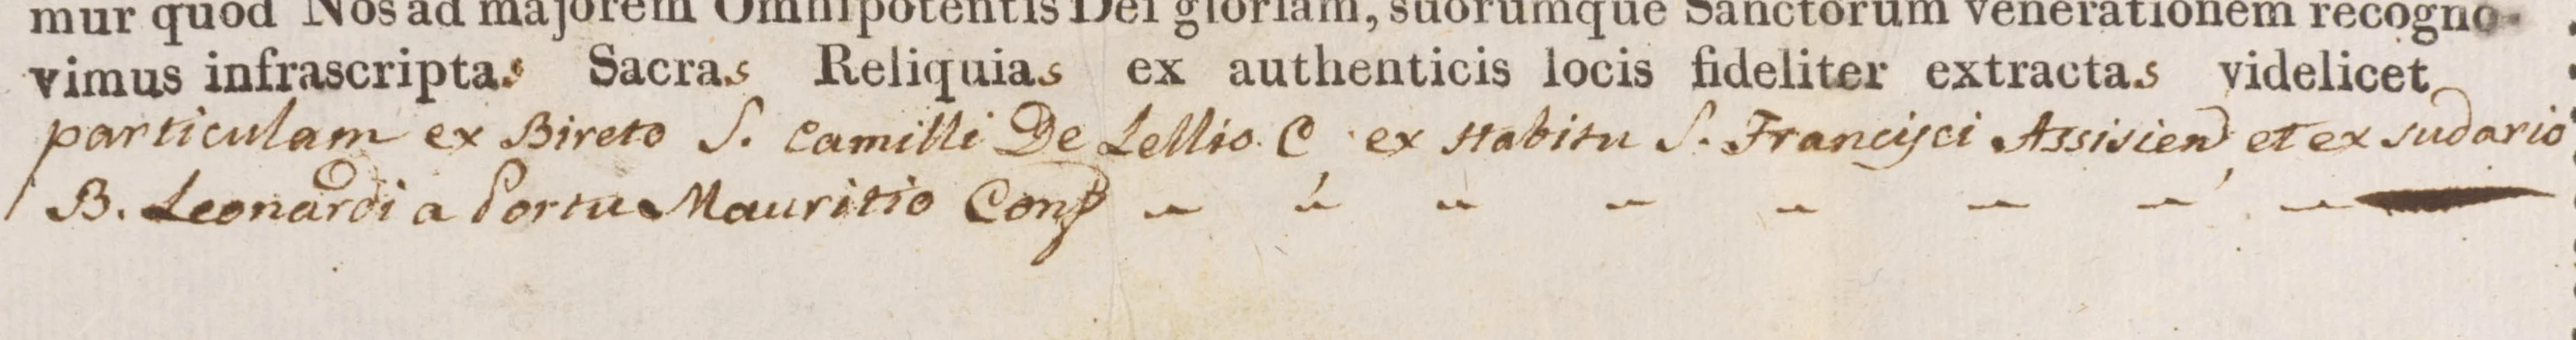 mur quod Nos ad majorem Omnipotentis Dei gloriam, suorumque Sanctorum venerationem recogno-
vimus infrascriptas Sacras Reliquias ex authenticis locis fideliter extractas videlicet
particulam ex Bireto S. Camilli De Lellis. C ex Habitu S. Francisci Assisien et ex sudario
B. Leonardi a Portu Mauritio Conf